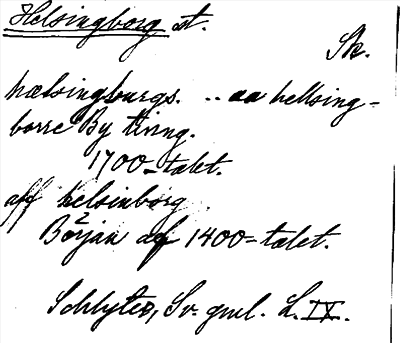 Helsingborg st.
Sk.
hælsingburgs. .. aa hellsing-
borre By tting.
1700-talet.
aff helsinborg
Början af 1400-talet.
Schlyter, Sv. gml. L. IX.